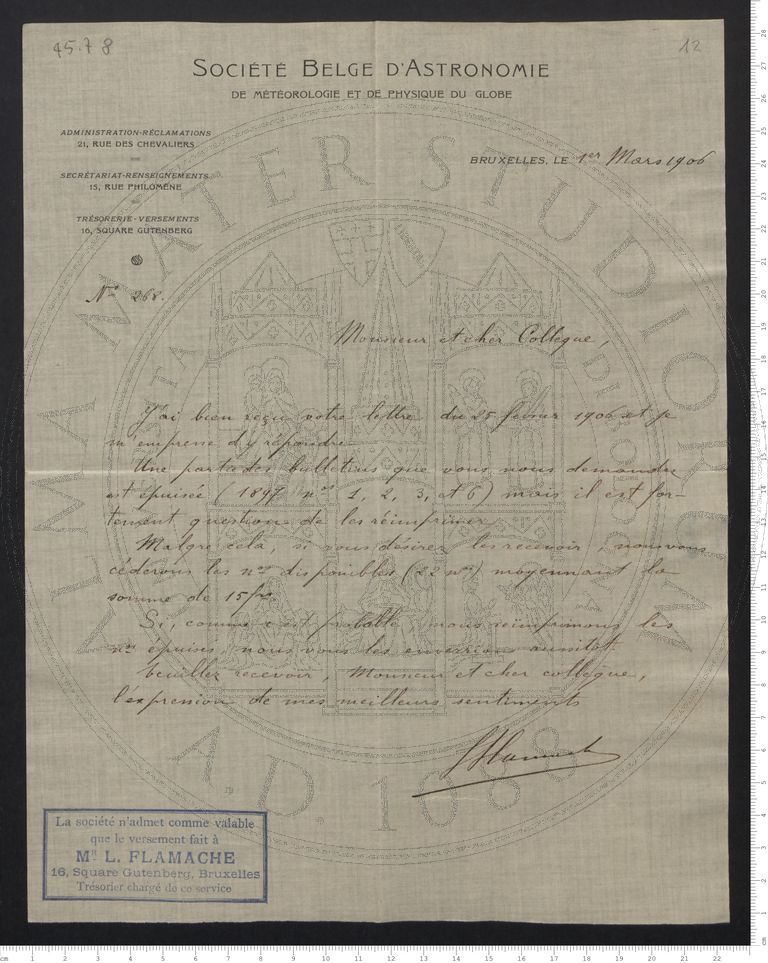 45.7 8
12
SOCIÉTÉ BELGE D'ASTRONOMIE
DE MÉTÉOROLOGIE ET DE PHYSIQUE DU GLOBE
ADMINISTRATION-RÉCLAMATIONS
21, RUE DES CHEVALIERS
BRUXELLES, LE 1er Mars 1906
SECRÉTARIAT-RENSEIGNEMENTS
15, RUE PHILOMÈNE
TRÉSORERIE-VERSEMENTS
16, SQUARE GUTENBERG
No 268.
Monsieur et cher Collègue,
J'ai bien reçu votre lettre du 25 février 1906 et je
m'empresse d'y répondre
Une partie des bulletins que vous nous demandez
est épuisée (1897 nos 1, 2, 3, et 6) mais il est for-
tement question de les réimprimer
Malgré cela, si vous désirez les recevoir, nous vous
céderons les nos disponibles (22 nos) moyennant la
somme de 15 frs
Si, comme c'est probable nous réimprimons les
nos épuisés, nous vous les enverrions aussitôt.
Veuillez recevoir, Monsieur et cher collègue,
l'expression de mes meilleurs sentiments
LFlamache
La société n'admet comme valable
que le versement fait à
MR L. FLAMACHE
16, Square Gutenberg, Bruxelles
Trésorier chargé de ce service
ALMA MATER STUDIORUM
A.D. 1088